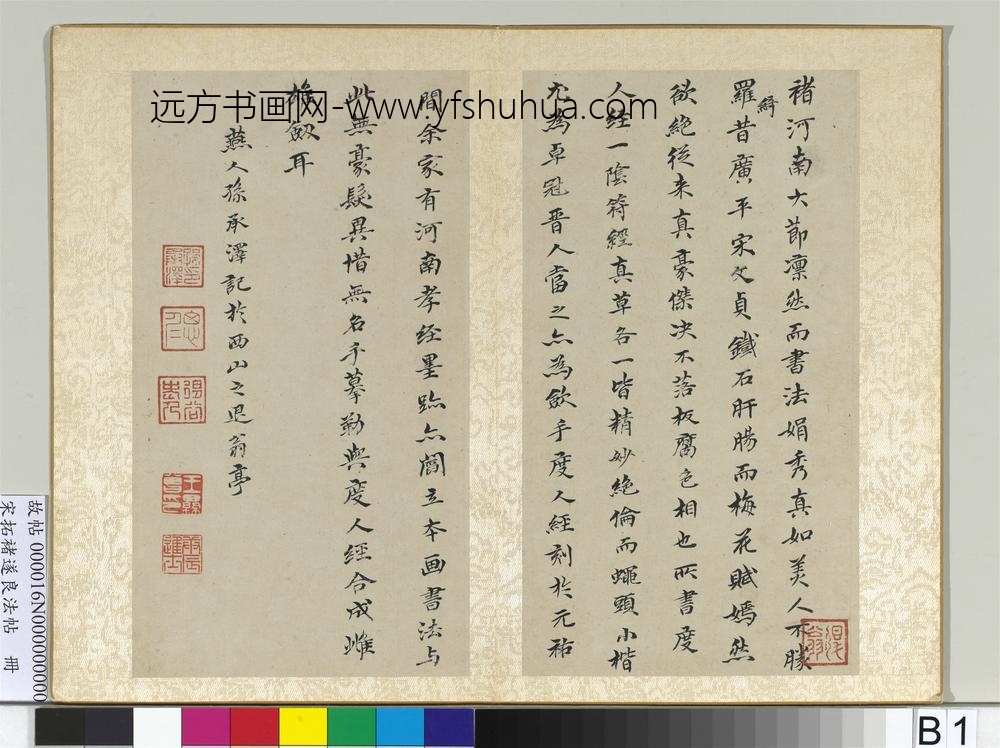 褚河南大節凛然而書法娟秀真如美人不勝
羅綺昔廣平宋文貞鐵石肝腸而梅花賦嫣然
欲絶從来真豪傑决不落板腐色相也所書度
人经一陰符經真草各一皆精妙絶倫而蠅頭小楷
尤為卓冠晋人當之亦為歛手度人經刻於元祐
間余家有河南孝经墨跡亦閻立本画書法与
此無豪髮異惜無名手摹勒與度人經合成雌
雄劔耳
燕人孫承澤記於西山之退翁亭
远方书画网-www.yfshuhua.com
退翁
故帖 000016N000000000
宋拓褚遂良法帖 冊
B 1